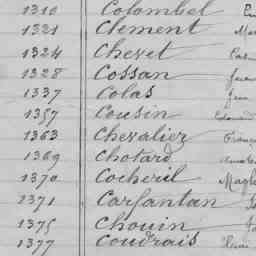 1310 Colombel
1321 Clement
1324 Chevet
1328 Cossan
1337 Colas
1357 Cousin
1363 Chevalier
1369 Chotard
1370 Cocheril
1371 Corfantan
1375 Chouin
1377 Coudrais